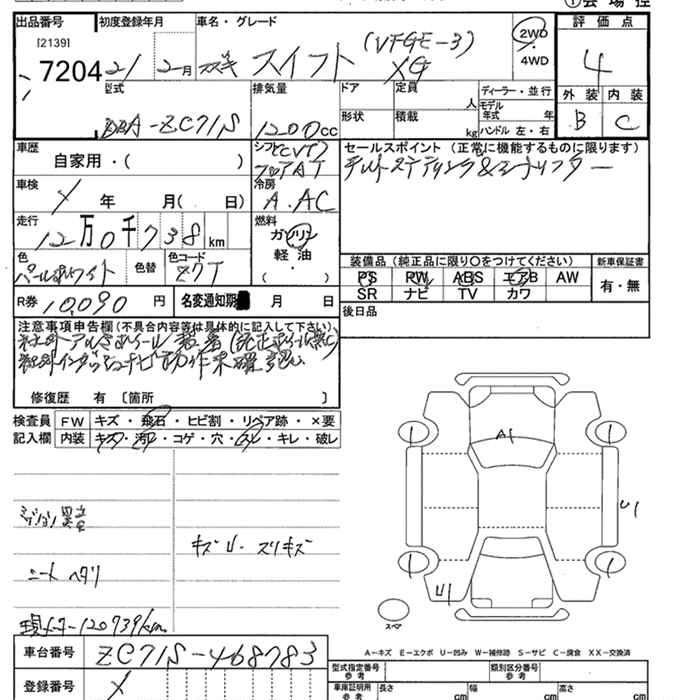 ①会場控
出品番号 初度登録年月 車名・グレード 評価点
[2139]
7204 21年 2月 スズキ スイフト (VFGE-3) XG 2WD 4WD 4
型式 排気量 ドア 定員 人 ディーラー・並行 外装 内装
DBA-ZC71S 1200cc 形状 積載 kg モデル年式 年 ハンドル 左・右 B C
車歴 シフト (CVT) セールスポイント (正常に機能するものに限ります)
自家用・( ) フロアAT チルトステアリング&シートリフター
車検 年 月( 日) 冷房 A.AC
走行 12万0千738km 燃料 ガソリン 軽油 ( )
色 色替 色コード 装備品(純正品に限り〇をつけてください) 新車保証書
パールホワイト Z7T PS PW ABS エアB AW 有・無
SR ナビ TV カワ
R券 10,090円 名変通知期 月 日 後日品
注意事項申告欄(不具合内容等は具体的に記入して下さい)
社外アルミホイール装着(純正ホイール無し)
社外インダッシュナビ動作未確認
修復歴 有 〔箇所 〕
検査員 FW キズ・飛石・ヒビ割・リペア跡・×要
記入欄 内装 キズ・汚レ・コゲ・穴・スレ・キレ・破レ
A1
U1
ミッション異音
キズ U・スリキズ
シートヘタリ
U1
スペア
現メーター120739km
A-キズ E-エクボ U-凹み W-補修跡 S-サビ C-腐食 XX-交換済
車台番号 ZC71S-468783 型式指定番号 参考 類別区分番号 参考
登録番号 車庫証明用 参考 長さ cm 幅 cm 高さ cm